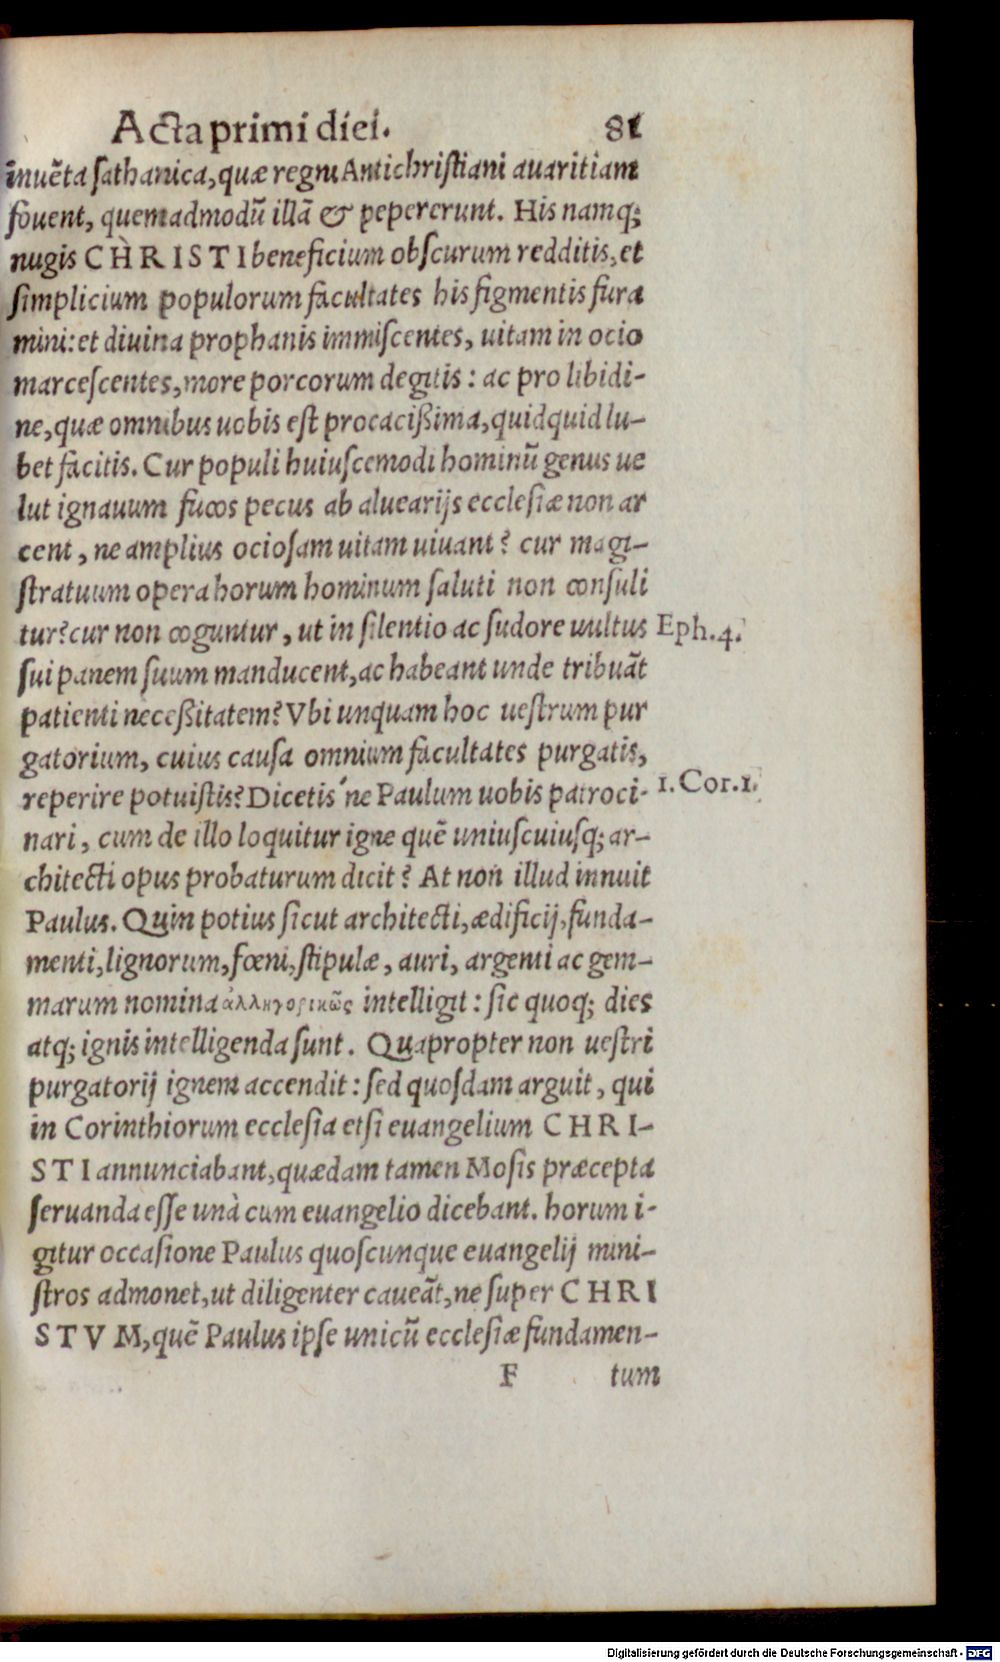 Acta primi diei. 81
inuẽta sathanica, quæ regni Antichristiani auaritiam
fouent, quemadmodũ illã & pepererunt. His namq;
nugis CHRISTI beneficium obscurum redditis, et
simplicium populorum facultates his figmentis fura
mini: et diuina prophanis immiscentes, uitam in ocio
marcescentes, more porcorum degitis: ac pro libidi-
ne, quæ omnibus uobis est procacißima, quidquid lu-
bet facitis. Cur populi huiuscemodi hominũ genus ue
lut ignauum fucos pecus ab aluearijs ecclesiæ non ar
cent, ne amplius ociosam uitam uiuant? cur magi-
stratuum opera horum hominum saluti non consuli
tur? cur non coguntur, ut in silentio ac sudore uultus Eph.4.
sui panem suum manducent, ac habeant unde tribuãt
patienti necessitatem? Vbi unquam hoc uestrum pur
gatorium, cuius causa omnium facultates purgatis,
reperire potuistis? Dicetis´ne Paulum uobis patroci- 1.Cor.1.
nari, cum de illo loquitur igne quẽ uniuscuiusq; ar-
chitecti opus probaturum dicit? At non illud innuit
Paulus. Quin potius sicut architecti, ædificij, funda-
menti, lignorum, fœni, stipulæ, auri, argenti ac gem-
marum nomina ἀλληγορικῶς intelligit: sic quoq; dies
atq; ignis intelligenda sunt. Quapropter non uestri
purgatorij ignem accendit: sed quosdam arguit, qui
in Corinthiorum ecclesia etsi euangelium CHRI-
STI annunciabant, quædam tamen Mosis præcepta
seruanda esse unà cum euangelio dicebant. horum i-
gitur occasione Paulus quoscunque euangelij mini-
stros admonet, ut diligenter caueãt, ne super CHRI
STVM, quẽ Paulus ipse unicũ ecclesiæ fundamen-
F tum
Digitalisierung gefördert durch die Deutsche Forschungsgemeinschaft - DFG